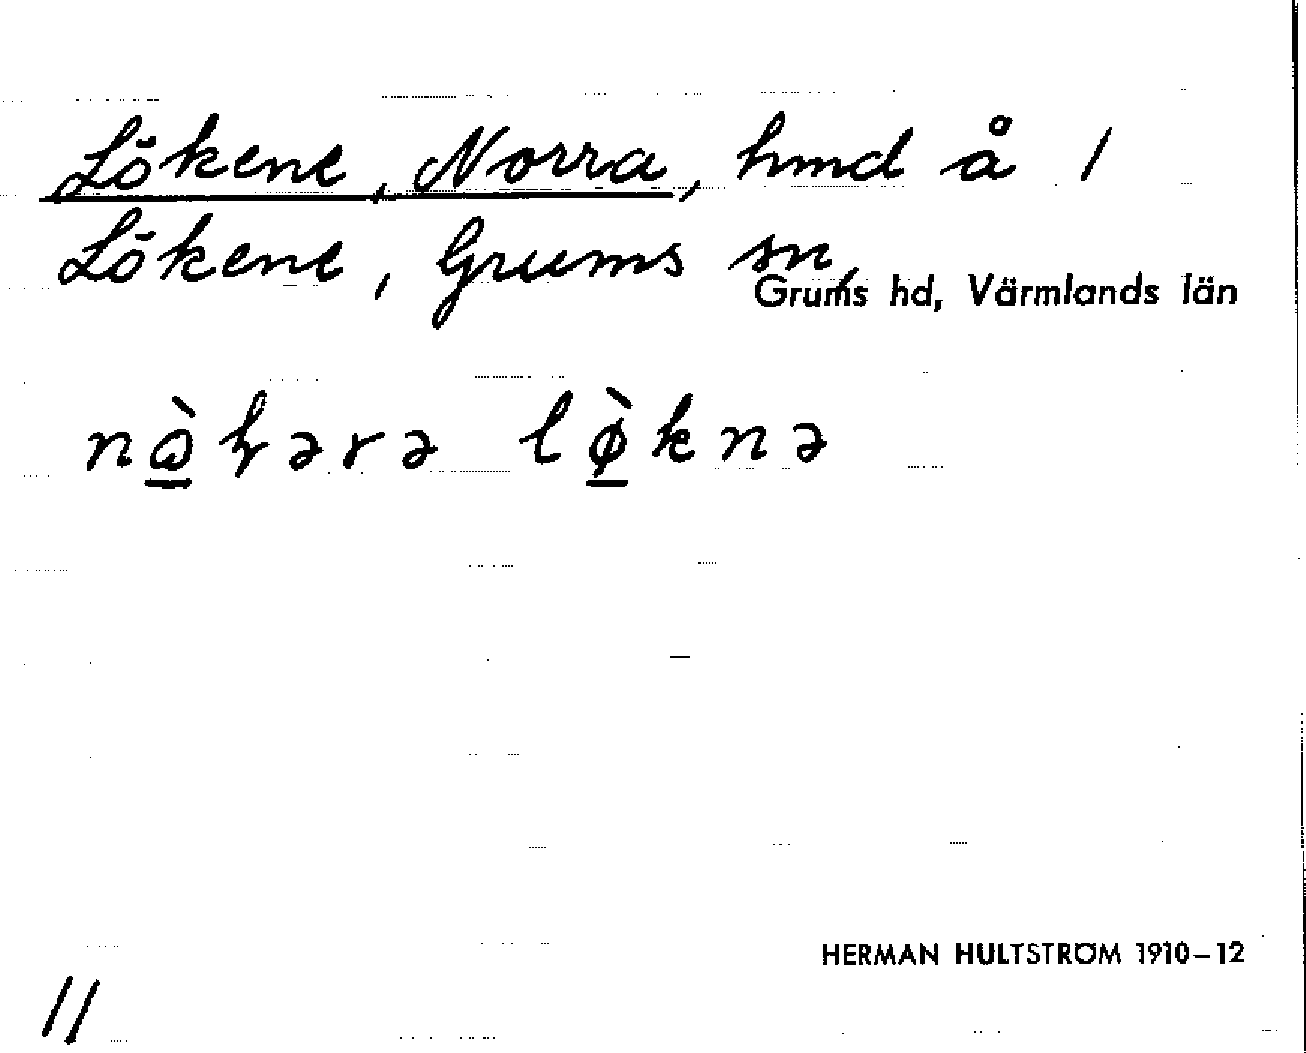 Lökene, Norra, hmd å 1
Lökene, Grums sn,
Grums hd, Värmlands län
lø̀knə
HERMAN HULTSTRÖM 1910–12
11